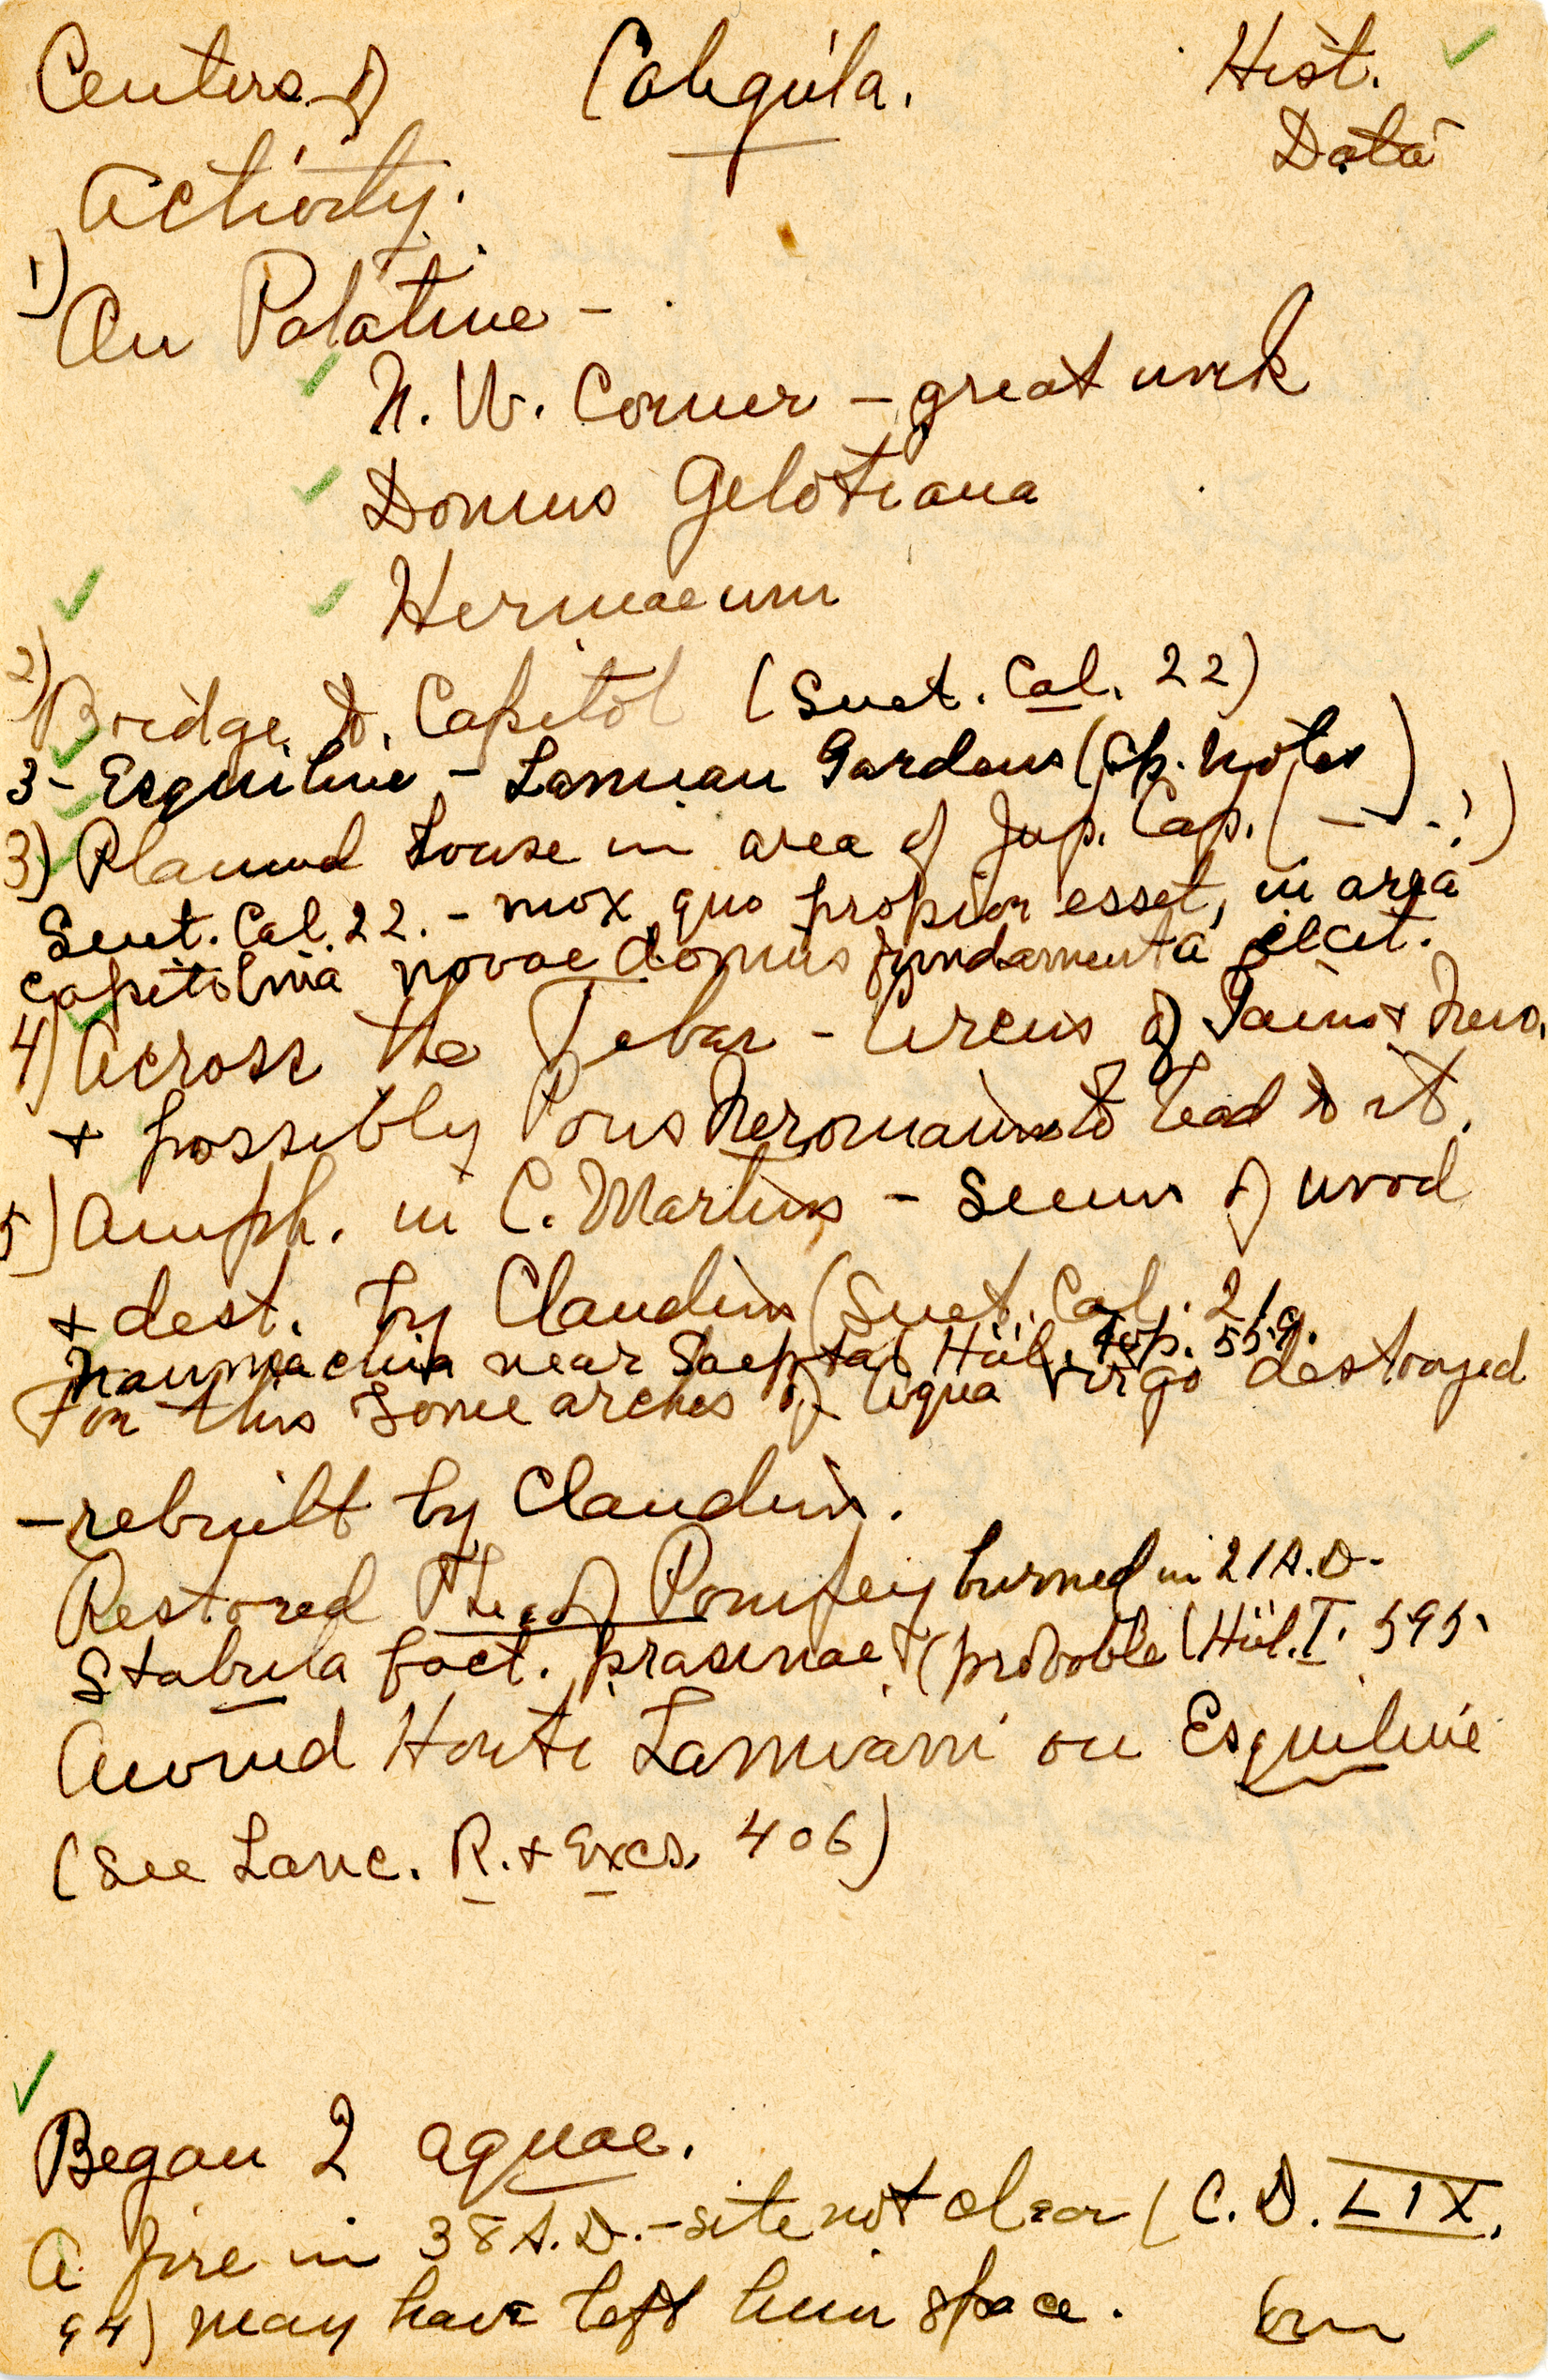 Centers of Caligula. Hist.
Activity. Data
1) On Palatine -
N. W. Corner - great work
Domus Gelotiana
Hermaeum
2) Bridge to Capitol (Suet. Cal. 22)
3- Esquiline - Lamian Gardens (Op. Notes)
3) Planned house in area of Jup. Cap. ( - - - ! )
Suet. Cal. 22. - mox quo propior esset, in area
Capitolina novae domus fundamenta iecit.
4) Across the Tiber - Circus of Gaius + Nero.
+ possibly Pons Neronianus to lead to it.
5) Amph. in C. Martius - seems of wood
+ dest. by Claudius (Suet. Cal. 21
Naumachia near Saepta Hül. Top. 559.
For this some arches of Aqua Virgo destroyed
- rebuilt by Claudius.
Restored The. of Pompey burned in 21 A.D.
Stabula fact. prasinae (probable (Hül. I. 595.
Owned Horti Lamiani on Esquiline
(See Lanc. R. + Excs. 406)
Began 2 aquae.
A fire in 38 A.D. - site not clear (C. D. LIX,
94) may have left him space.